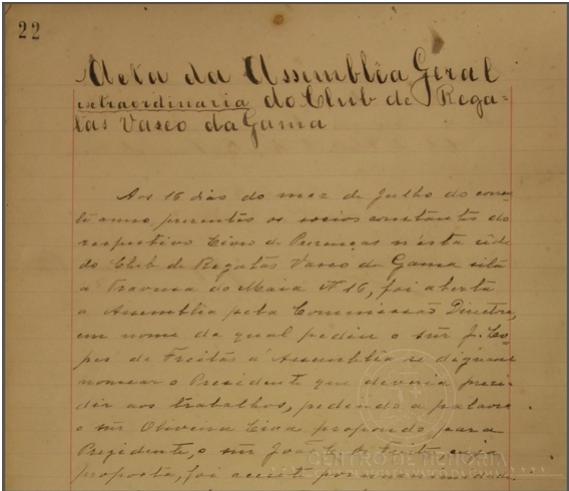 22
Acta da Assemblêa Geral
extraordinaria do Club de Rega=
tas Vasco da Gama
Aos 16 dias do mez de Julho do corren-
te anno presentes os socios constantes do
respectivo Livro de Presenças n'esta séde
do Club de Regatas Vasco da Gama sita
á Travessa do Maia Nº 16, foi aberta
a Assemblêa pela Commissão Directora,
em nome da qual pediu o snr J. Lo-
pes de Freitas á Assemblêa se dignasse
nomear o Presidente que deveria presi-
dir aos trabalhos, pedindo a palavra
o snr Oliveira propondo para
Presidente, o snr João cuja
proposta, foi acceite por unanimidade
CENTRO DE MEMÓRIA